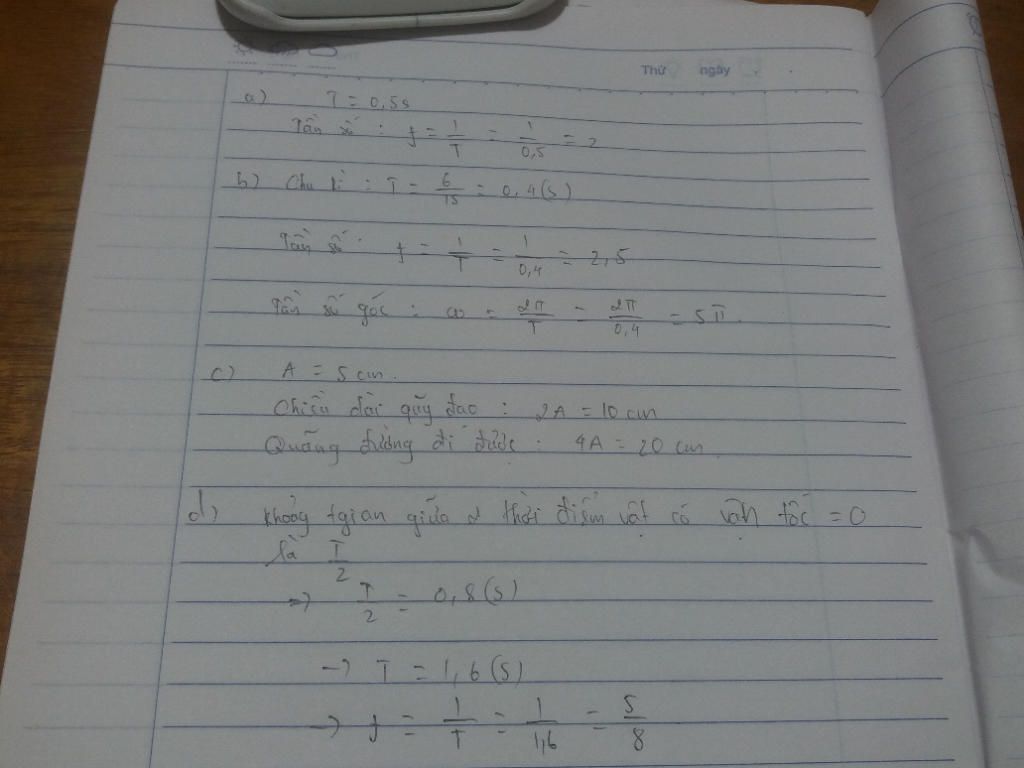 Thứ ngày
a) T = 0,5s
Tần số : f = 1/T = 1/0,5 = 2
b) Chu kì : T = 6/15 = 0,4(s)
Tần số : f = 1/T = 1/0,4 = 2,5
Tần số góc : ω = 2π/T = 2π/0,4 = 5π.
c) A = 5 cm.
Chiều dài quỹ đao : 2A = 10 cm
Quãng đường đi được : 4A = 20 cm
d) khoảng tgian giữa 2 thời điểm vật có vận tốc = 0
là T/2
=> T/2 = 0,8(s)
-> T = 1,6(s)
-> f = 1/T = 1/1,6 = 5/8